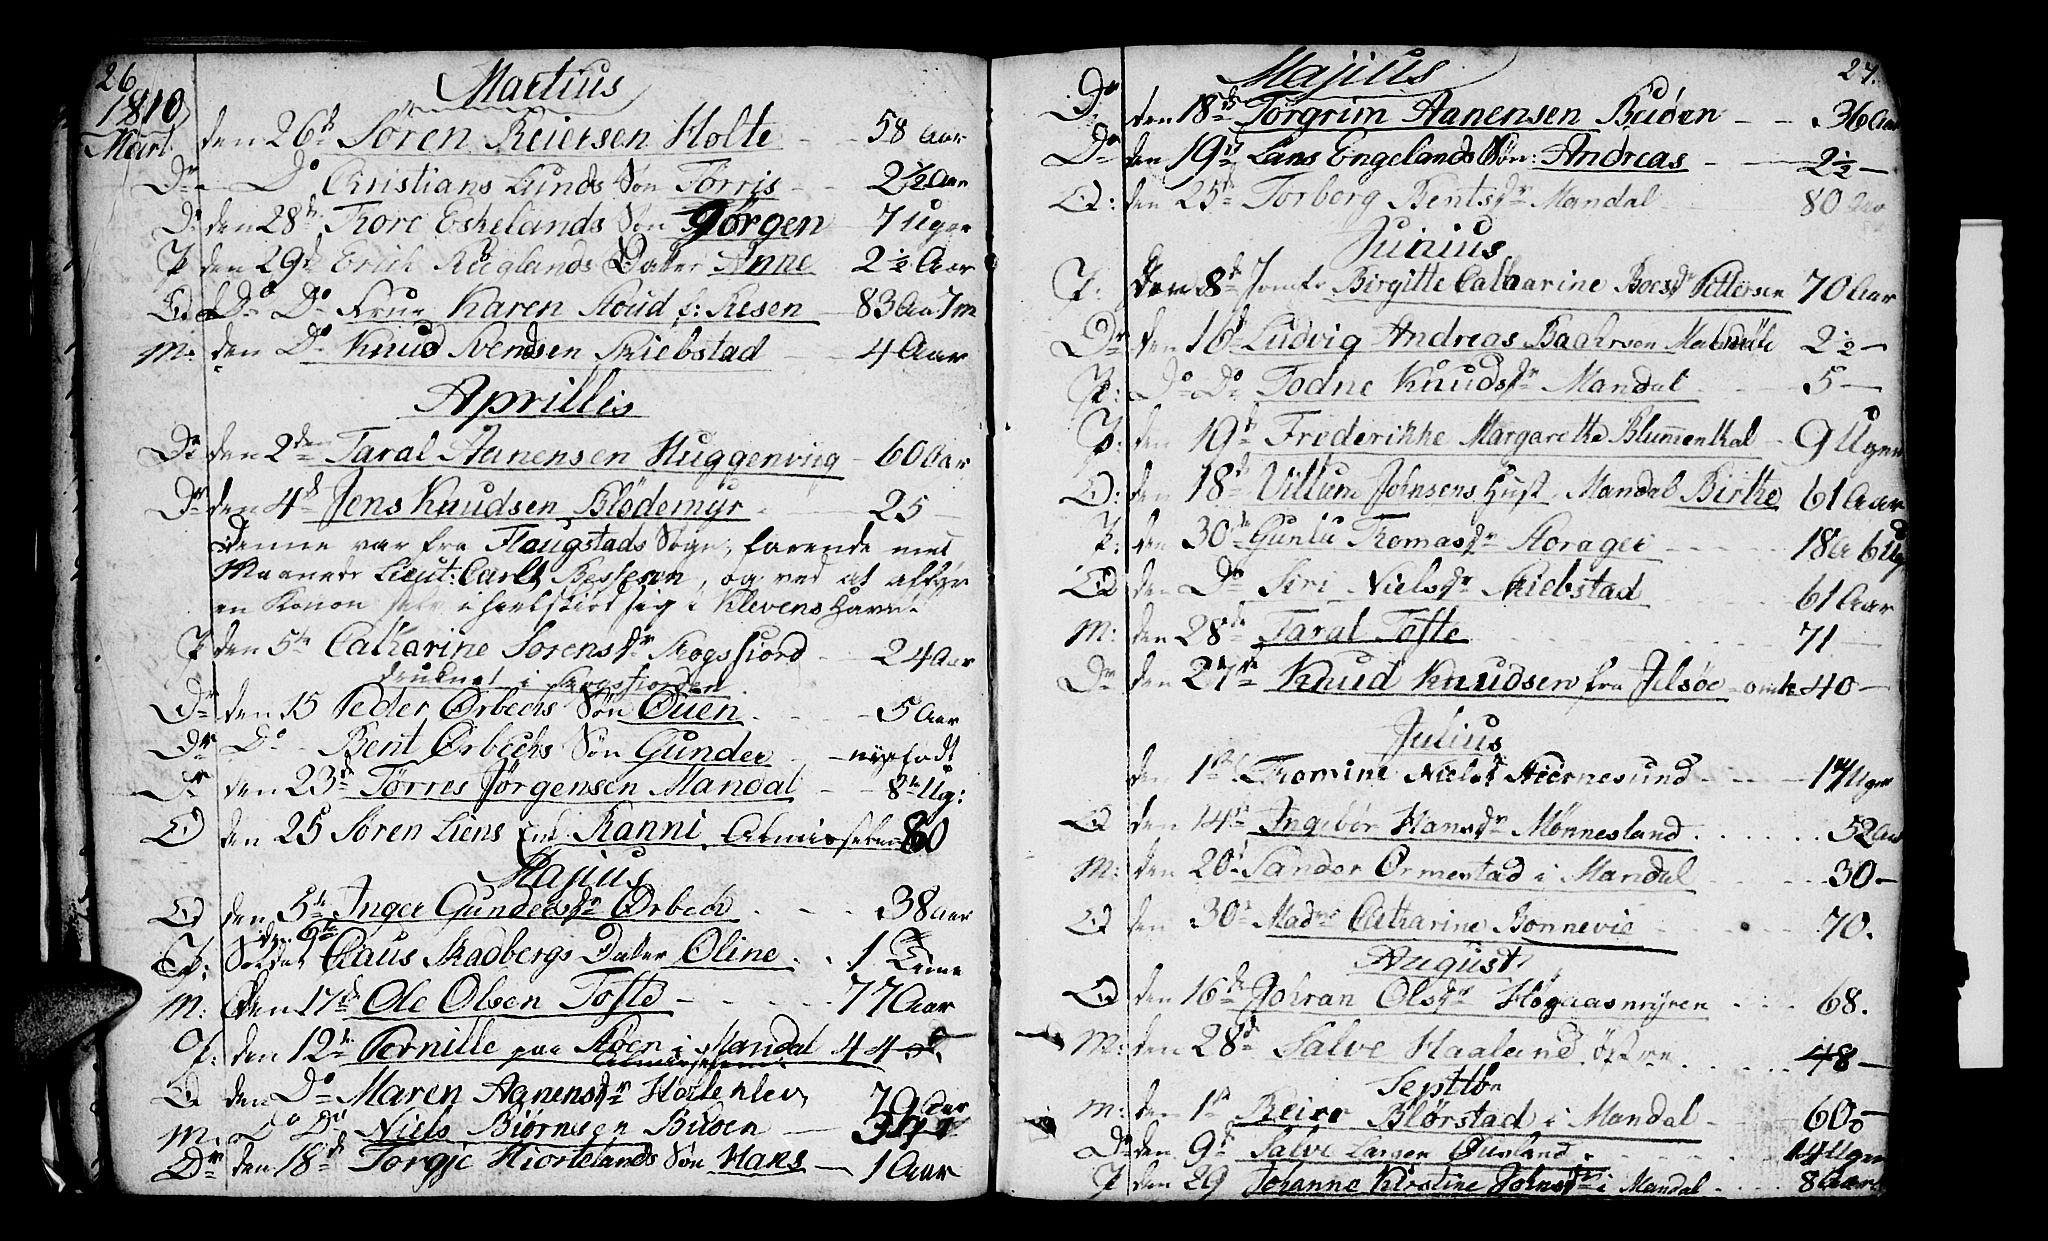 26
1810
Mart.
Martius
den 26de Sören Reiersen Holte 58 Aar
Dr Do Christians Lunds Søn Törris 2½ Aar
D: den 28de Tore Eskelands Søn Jörgen 7 Uger
P den 29de Erich Røglands Dater Anne 2½ Aar
Q Do Do Frue Karen Stoud f: Resen 83 Aar 7 m
M: den Do Knud Svendsen Skiebstad 4 Aar
Aprillis
Dr den 2den Taral Aanensen Huggenviig 60 Aar
Dr den 4de Jens Knudsen Blödemyr 25
Denne var fra Flougstads Sogn, farende med
Lieut: Carlt, og ved at affyre
en Kanon ihielskiød sig i Klevens Havn.
P den 5te Catharine Sörens dr Skogsfiord 24 Aar
druknet i Skogsfiorden
Dr den 15 Peder Ørbechs Søn Ouen 5 Aar
Dr Do Bent Ørbechs Søn Gunder nyefødt
Dr den 23de Tørres Jørgensen Mandal 8te Ug:
Q den 25 Søren Liens Enk Ranni, Almisselem 80
Majius
Q den 5te Inger Gunders dr Ørbech 38 Aar
den 9te
P: Claus Skadbergs Dater Oline 1 Time
M: den 17de Ole Olsen Tofte 77 Aar
P: den 12te Pernille paa Øen i Mandal 44
Almisselem
Q den Do Maren Aanens dr 70 Aar
M: Do Do Niels Biörnsen Buöen
Dr den 18de Torgje Hiortelands Søn Hans 1 Aar
27.
Majius
Dr den 18de Torgrim Aanensen Buöen 36 Aar
Dr den 19de Lars Engelands Søn: Andreas 2½
Q: den 25de Torborg Bents dr Mandal 80
Junius
P: den 8de Jomfr Birgitte Catharine Boes dr Pettersen 70 Aar
Dr den 16de Ludvig Andreas Baahrsen 2½
P: Do Do Todne Knuds dr Mandal 5
P: den 19de Frederikke Margarethe Blumenthal 9 Uger
Q: den 18de Villum Johnsens Hust. Mandal Birthe 61 Aar
P: den 30te Gunlu Thomas dr Storager 18 A 6 Ug
Q den Do Siri Niels dr Skiebstad 61 Aar
M: den 28de Taral Tofte 71
Dr den 27de Knud Knudsen fra Jelsöe omtr 40
Julius
den 1ste Thomine Niels dr Hiernesund 14 Uger
Q den 14de Ingebör Hans dr Mønnesland 52 Aar
M: den 20de Sander Ormestad i Mandal 30
Q den 30te Mad Catharine Bonnevie 70.
August
Q den 16de Johran Ols dr Høgaasmyren 68.
M: den 28de Salve Haaland östre 48
Septbr
M: den 1ste Reier Blörstad i Mandal 60
Dr den 9de Salve Larsen Ousland 14 Uger
P den 29 Johanne Kirstine Johns dr i Mandal 8 Aar